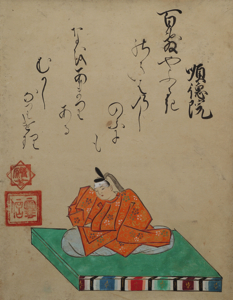 順徳院
百敷やふるき
のきはの
しのふに
も
なほあまり
ある
むかし
なりけり